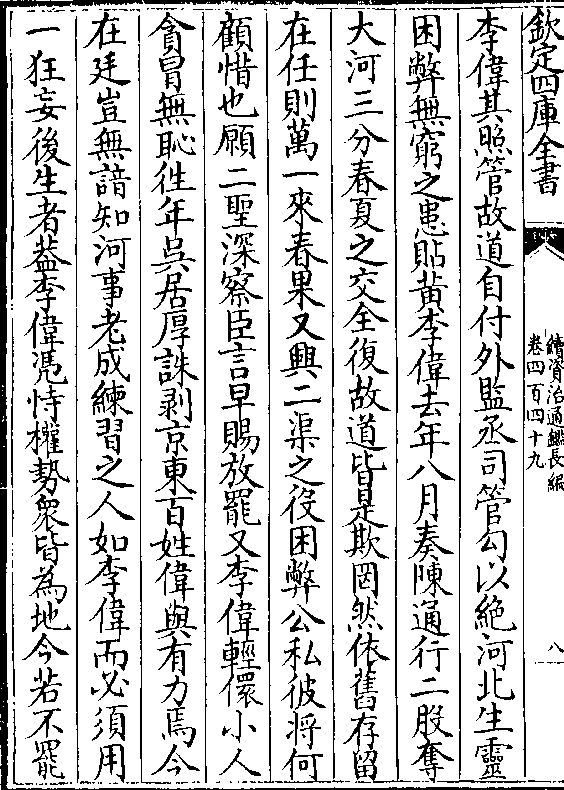 欽定四庫全書
續資治通鑑長編
卷四百四十九
八
李偉其照管故道自付外監丞司管勾以絶河北生靈
困弊無窮之患貼黃李偉去年八月奏陳通行二股奪
大河三分春夏之交全復故道皆是欺罔然依舊存留
在任則萬一來春果又興二渠之役困弊公私彼將何
顧惜也願二聖深察臣言早賜放罷又李偉輕儇小人
貪冒無恥徃年吳居厚誅剥京東百姓偉與有力焉今
在廷豈無諳知河事老成練習之人如李偉而必須用
一狂妄後生者葢李偉憑恃權勢衆皆為地今若不罷